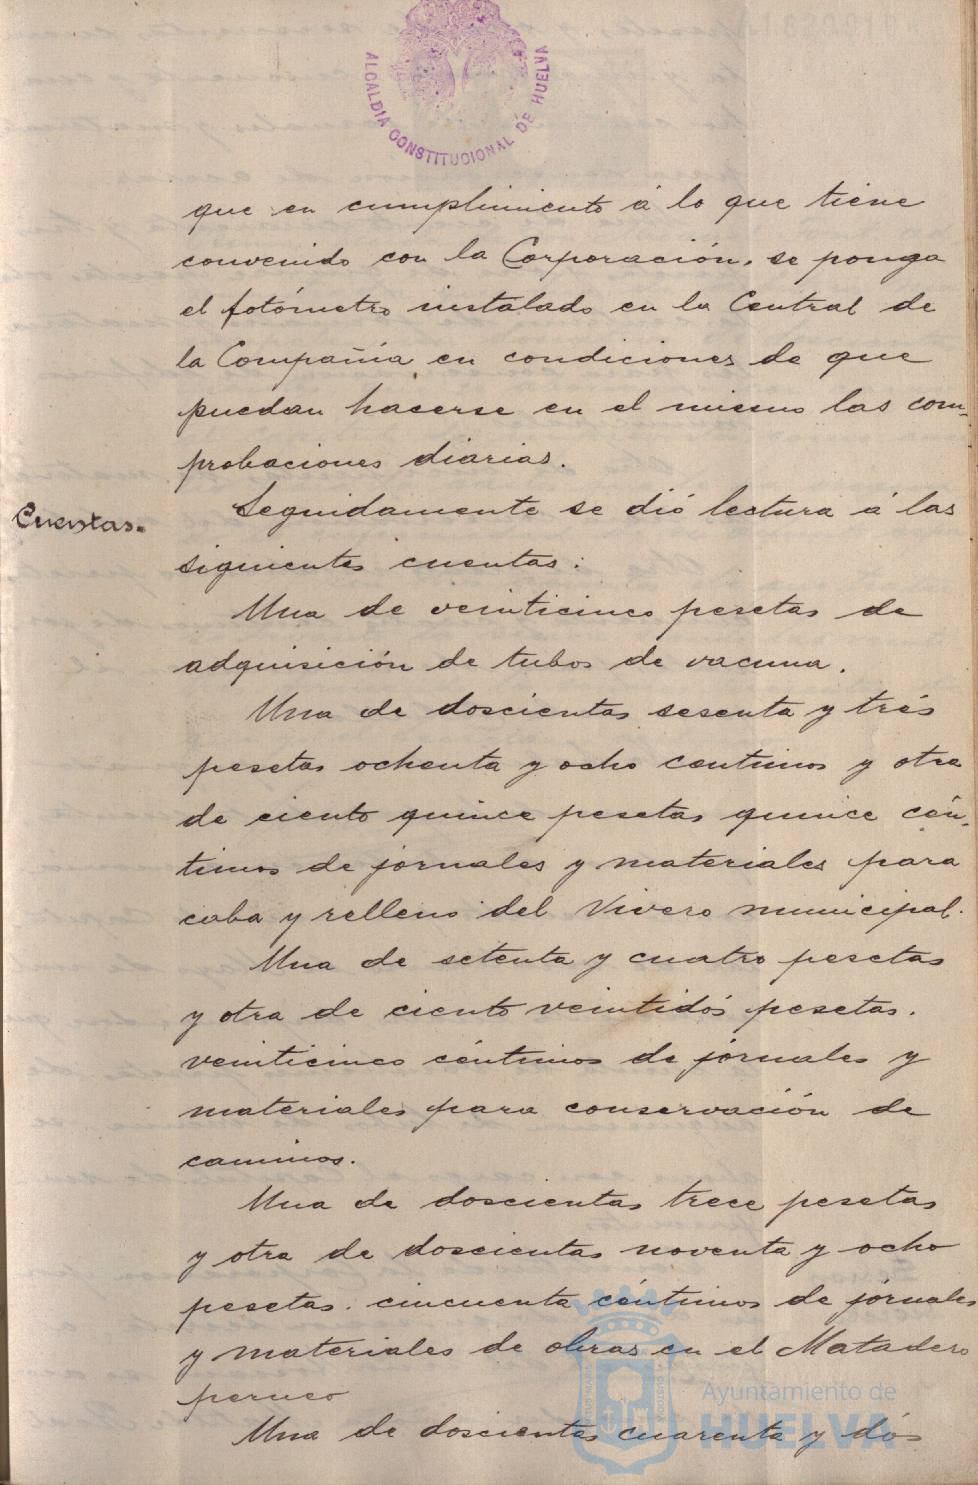 ALCALDIA CONSTITUCIONAL DE HUELVA
que en cumplimiento á lo que tiene
convenido con la Corporación, se ponga
el fotómetro instalado en la Central de
la Compañía en condiciones de que
puedan hacerse en el mismo las com-
probaciones diarias.
Cuentas.
Seguidamente se dió lectura á las
siguientes cuentas:
Una de veinticinco pesetas de
adquisición de tubos de vacuna.
Una de doscientas sesenta y trés
pesetas ochenta y ocho centimos y otra
de ciento quince pesetas quince cén-
timos de jornales y materiales para
caba y relleno del Vivero municipal.
Una de setenta y cuatro pesetas
y otra de ciento veintidós pesetas.
veinticinco céntimos de jornales y
materiales para conservación de
caminos.
Una de doscientas trece pesetas
y otra de doscientas noventa y ocho
pesetas. cincuenta céntimos de jornales
y materiales de obras en el Matadero
peruco
Una de doscientas cuarenta y dós
Ayuntamiento de
HUELVA